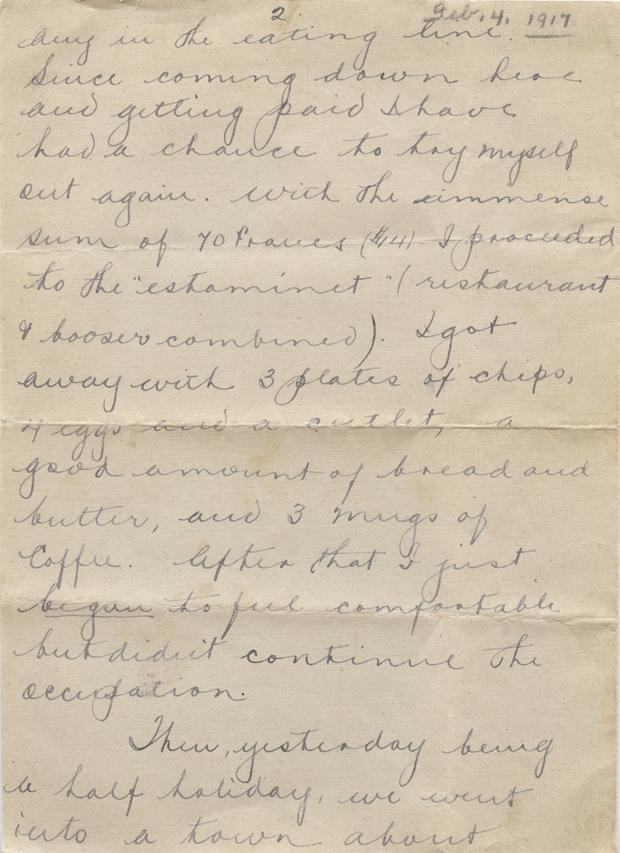 2
Feb. 4. 1917
any in the eating line.
Since coming down here
and getting paid I have
had a chance to try myself
out again. With the immense
sum of 70 Francs ($14) I proceeded
to the "estaminet" (restaurant
& booser combined). I got
away with 3 plates of chips,
4 eggs and a cutlet, a
good amount of bread and
butter, and 3 mugs of
Coffee. After that I just
began to feel comfortable
but didn't continue the
occupation.
Then, yesterday being
a half holiday, we went
into a town about